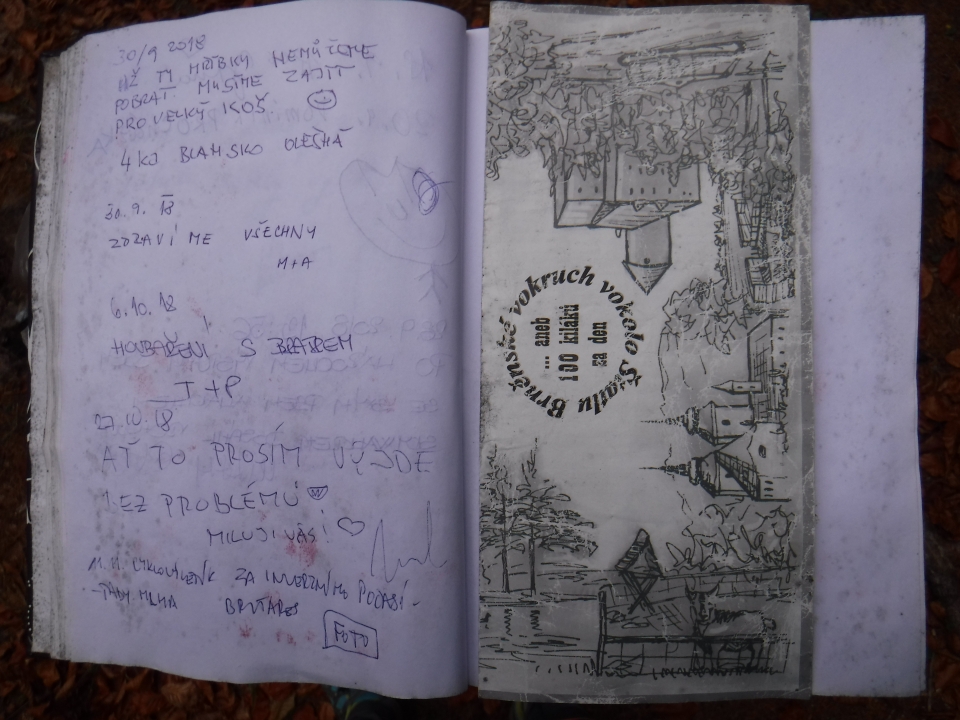 30/9 2018
UŽ TY HŘÍBKY NEMŮŽEME
POBRAT MUSÍME ZAJÍT
PRO VELKÝ KOŠ
4KO BLANSKO OLEŠNÁ
30.9. 18
ZDRAVÍ ME VŠECHNY
M+A
6.10.18
HOUBAŘENÍ S BRATREM
J+P
27.10.18
AŤ TO PROSÍM VYJDE
BEZ PROBLÉMŮ
MILUJI VÁS!
11.11 ZA INVERZNÍHO POČASÍ -
- TADY MLHA
FOTO
Brněnské vokruch vokolo Štatlu
... aneb
100 kiláků
za den